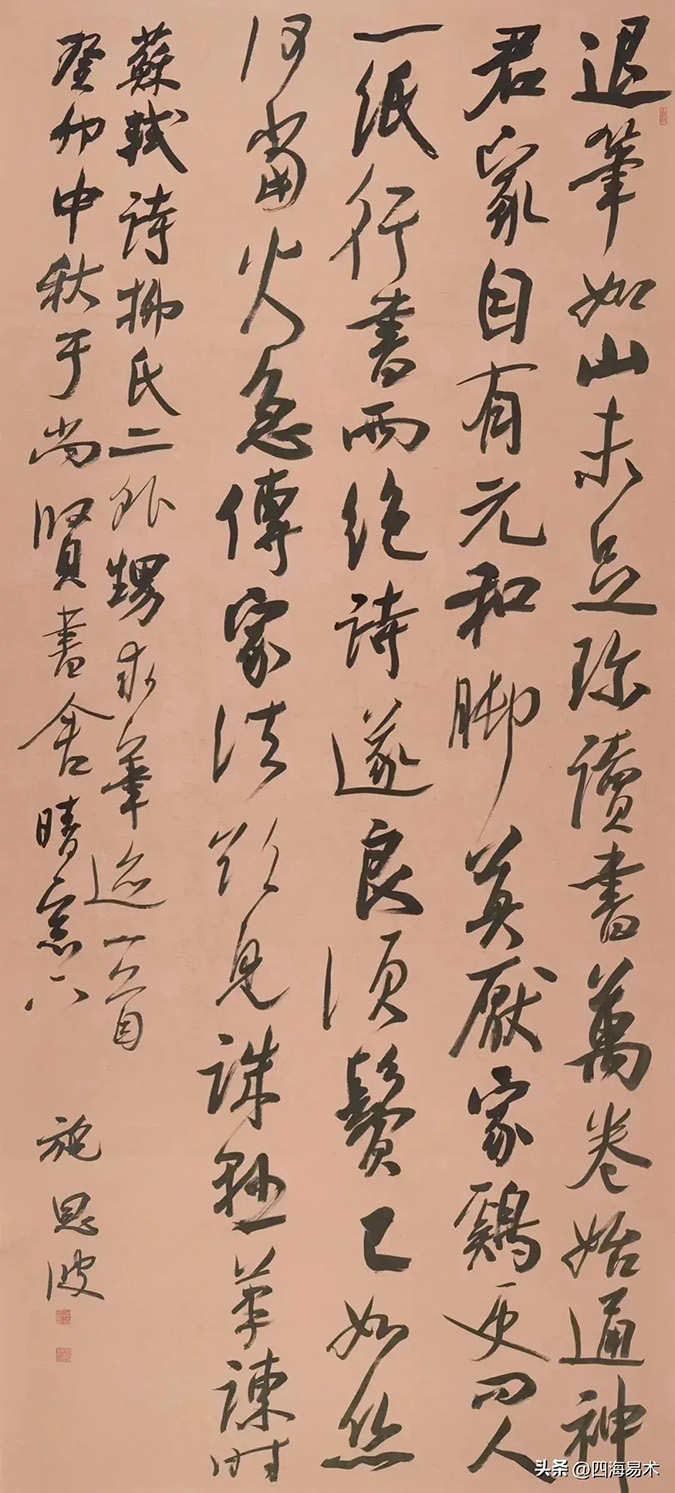 退筆如山未足珍讀書萬卷始通神
君家自有元和脚莫厭家鷄更問人
一紙行書兩絶詩遂良須鬢已如絲
何當火急傳家法欲見誠懸筆諫時
蘇軾詩柳氏二外甥求筆迹二首
癸卯中秋于尚賢書舍晴窓下 施恩波
头条 @四海易木